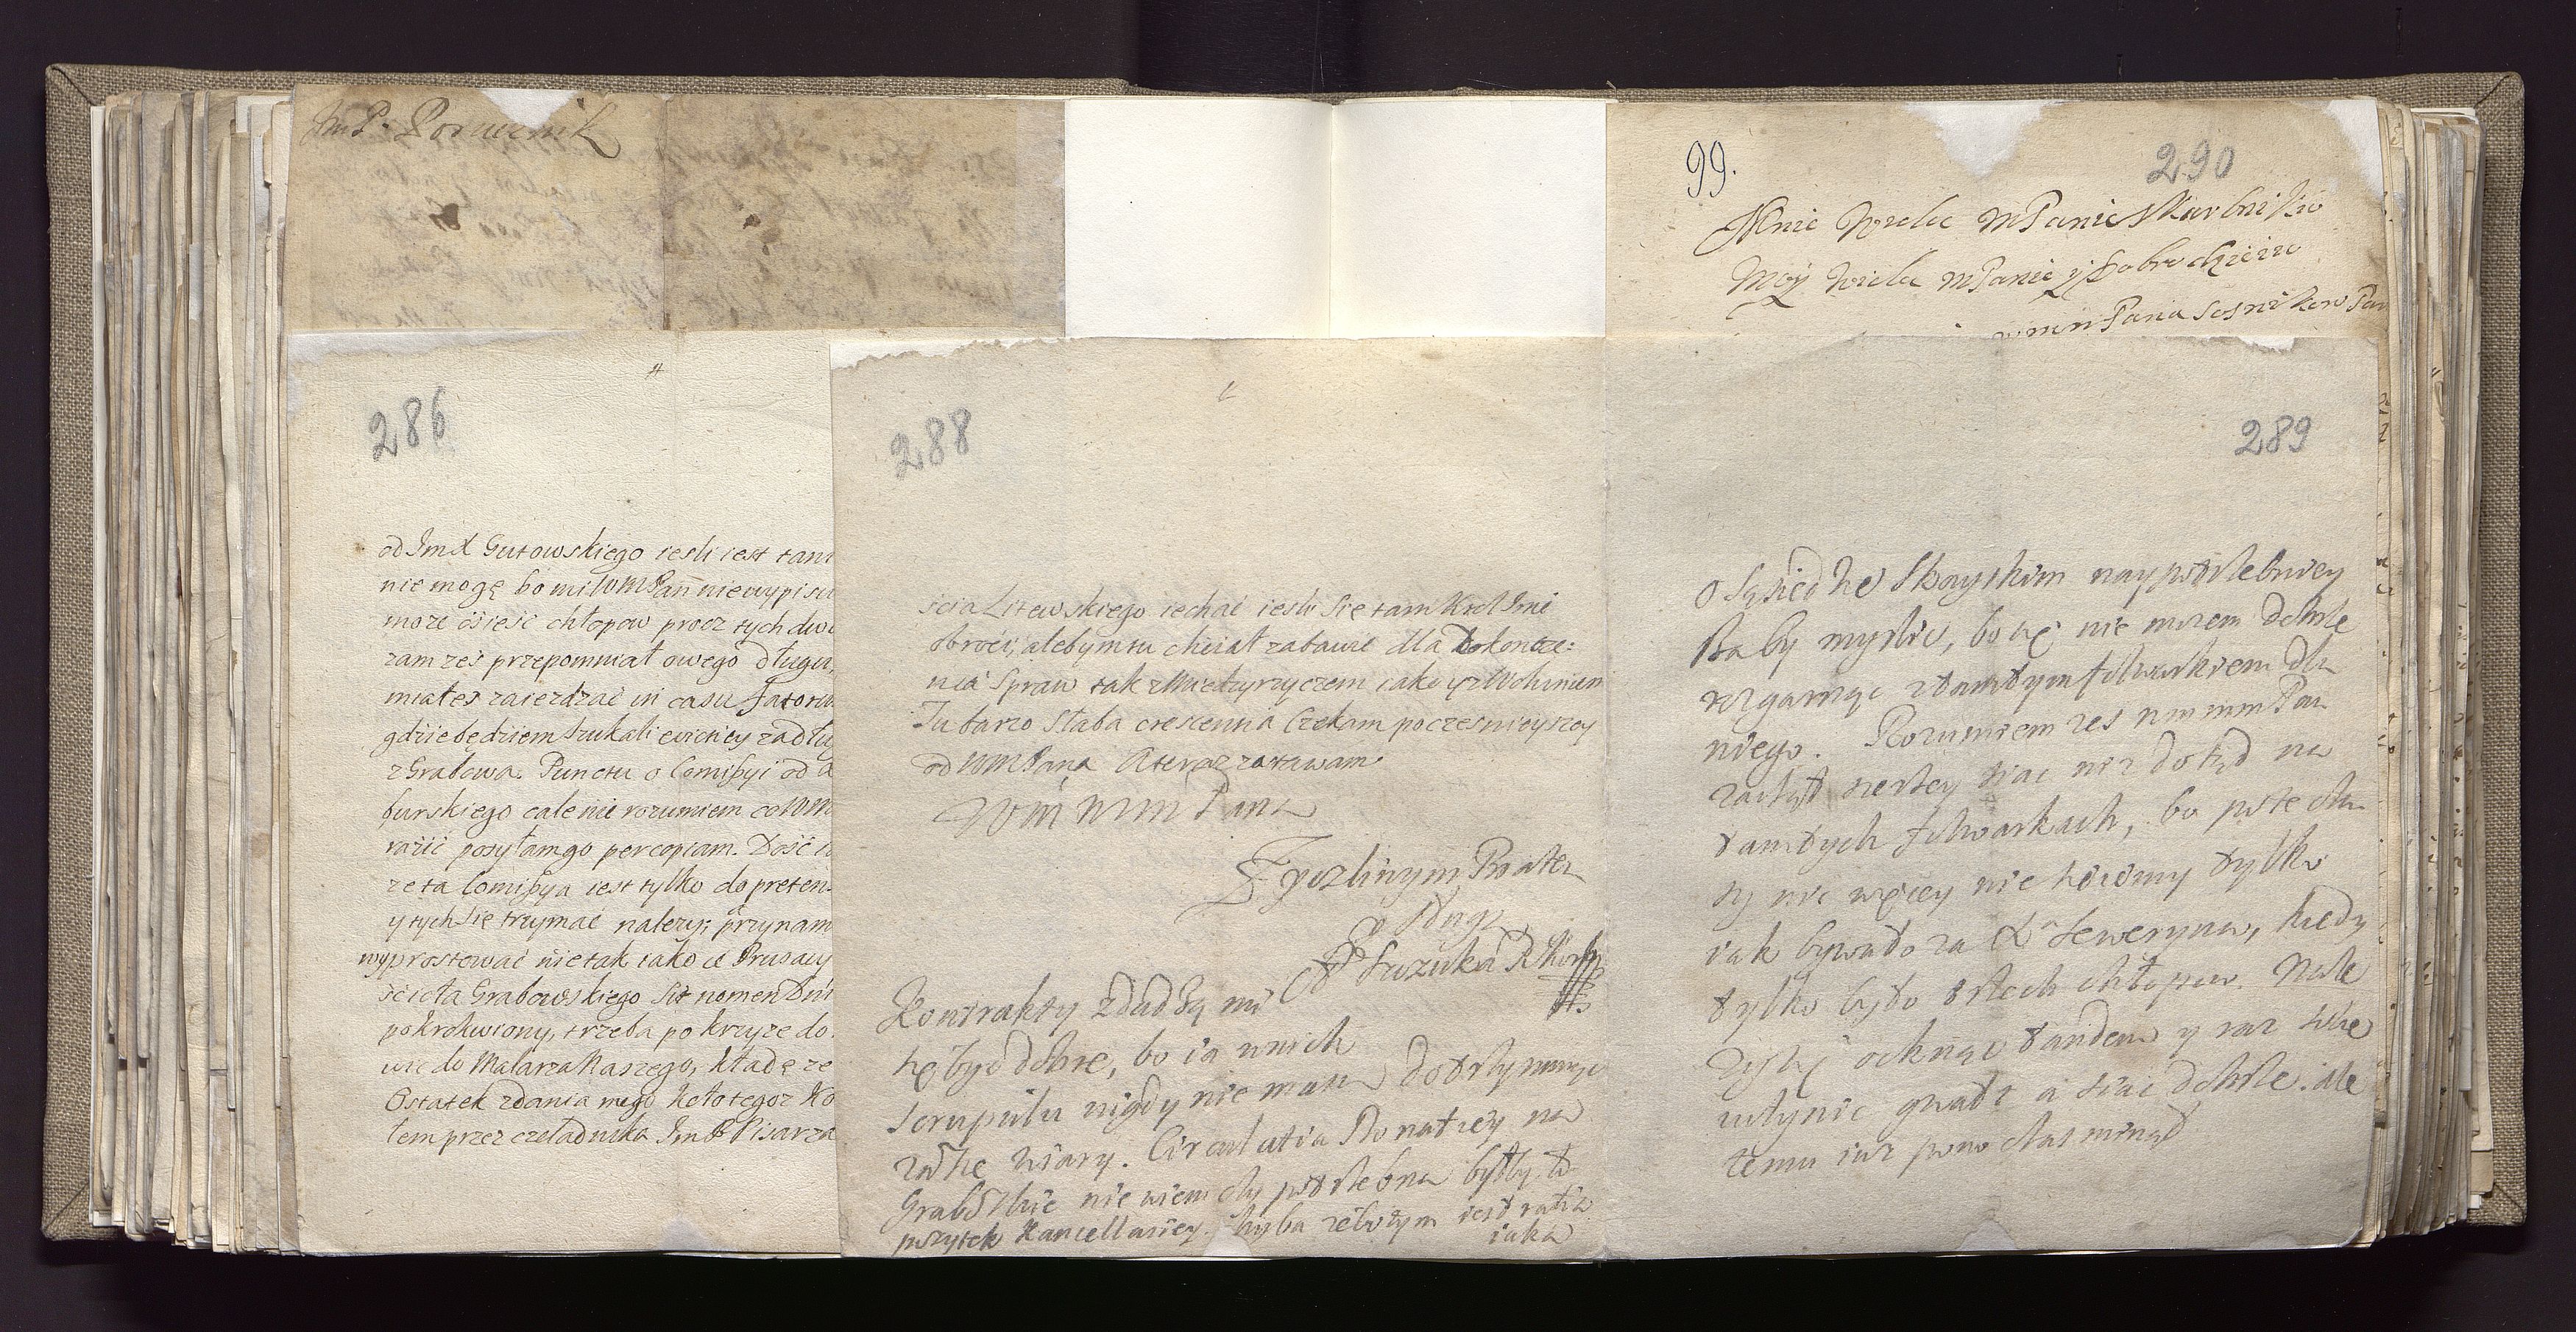 Im P. Porucznik
99.
290
Mnie Wielce MPanie Skarbniku
Moy Wielce MPanie y Dobrodzieiu
286
od Im X Gutowskiego iesli iest tam
nie mogę bo mi WMPan nie wypisu
może osieść chłopow procz tych dwu
zam żeś przepomniał owego długu,
miałeś zaiezdzać in casu
gdzie będziem szukali eviciey za dłu
z Grabowa. Punctu o Comissyi od
burskiego cale nie rozumiem co WM
razić posyłam go per copiam. Dość
że ta Comissya iest tylko do preten
y tych się trzymać należy; przynam
wyprostować nie tak iako ci Prusacy
ścioła Grabowskiego Sit nomen
pokrokwiony, trzeba po krzyże do
wić do Malarza Naszego, kładę że
Ostatek zdania mego
łem przez czeladnika Im P Pisarza
288
ścia Litewskiego iechać iesli się tam Krol Imć
obroci, ale bym tu chciał zabawić dla dokończe:
nia Spraw tak z Międzyrzyczem iako y z Wohiniem
Tu barzo słaba crescentia Czekam pocześnieyszey
od WMPana A teraz zostawam
WM MM Pana
Zyczliwym Bratem
y sługą
Szczuka
Kontrakty zdadzą mi
się być dobre, bo ia w nich
scrupułu nigdy nie mam dotrzymuiąc
wiary. Circulatia Donatiey na
Grabowskie nie wiem czy potrzebna byłby to
pożytek Kancellariey. chyba żeby w tym iest ratia
iaka
289
o Sąsiedzkie Skayskim naypotrzebniey
Baby myslić, bo się nie możem dobrze
rozgarnąć z tamtym folwarkiem dla
niego. Rozumiem żes WM MM Pan
zaczął szerzey siać niż dotąd na
tamtych folwarkach, bo przecha
dy nic więcey nie widzimy tylko
iak bywało za X Seweryna, kiedy
tylko było trzech chłopow. Nale
ży się ocknąć tandem y raz sobie
uczynić gwałt a siać dobrze. ale
temu iuż pono czas minął